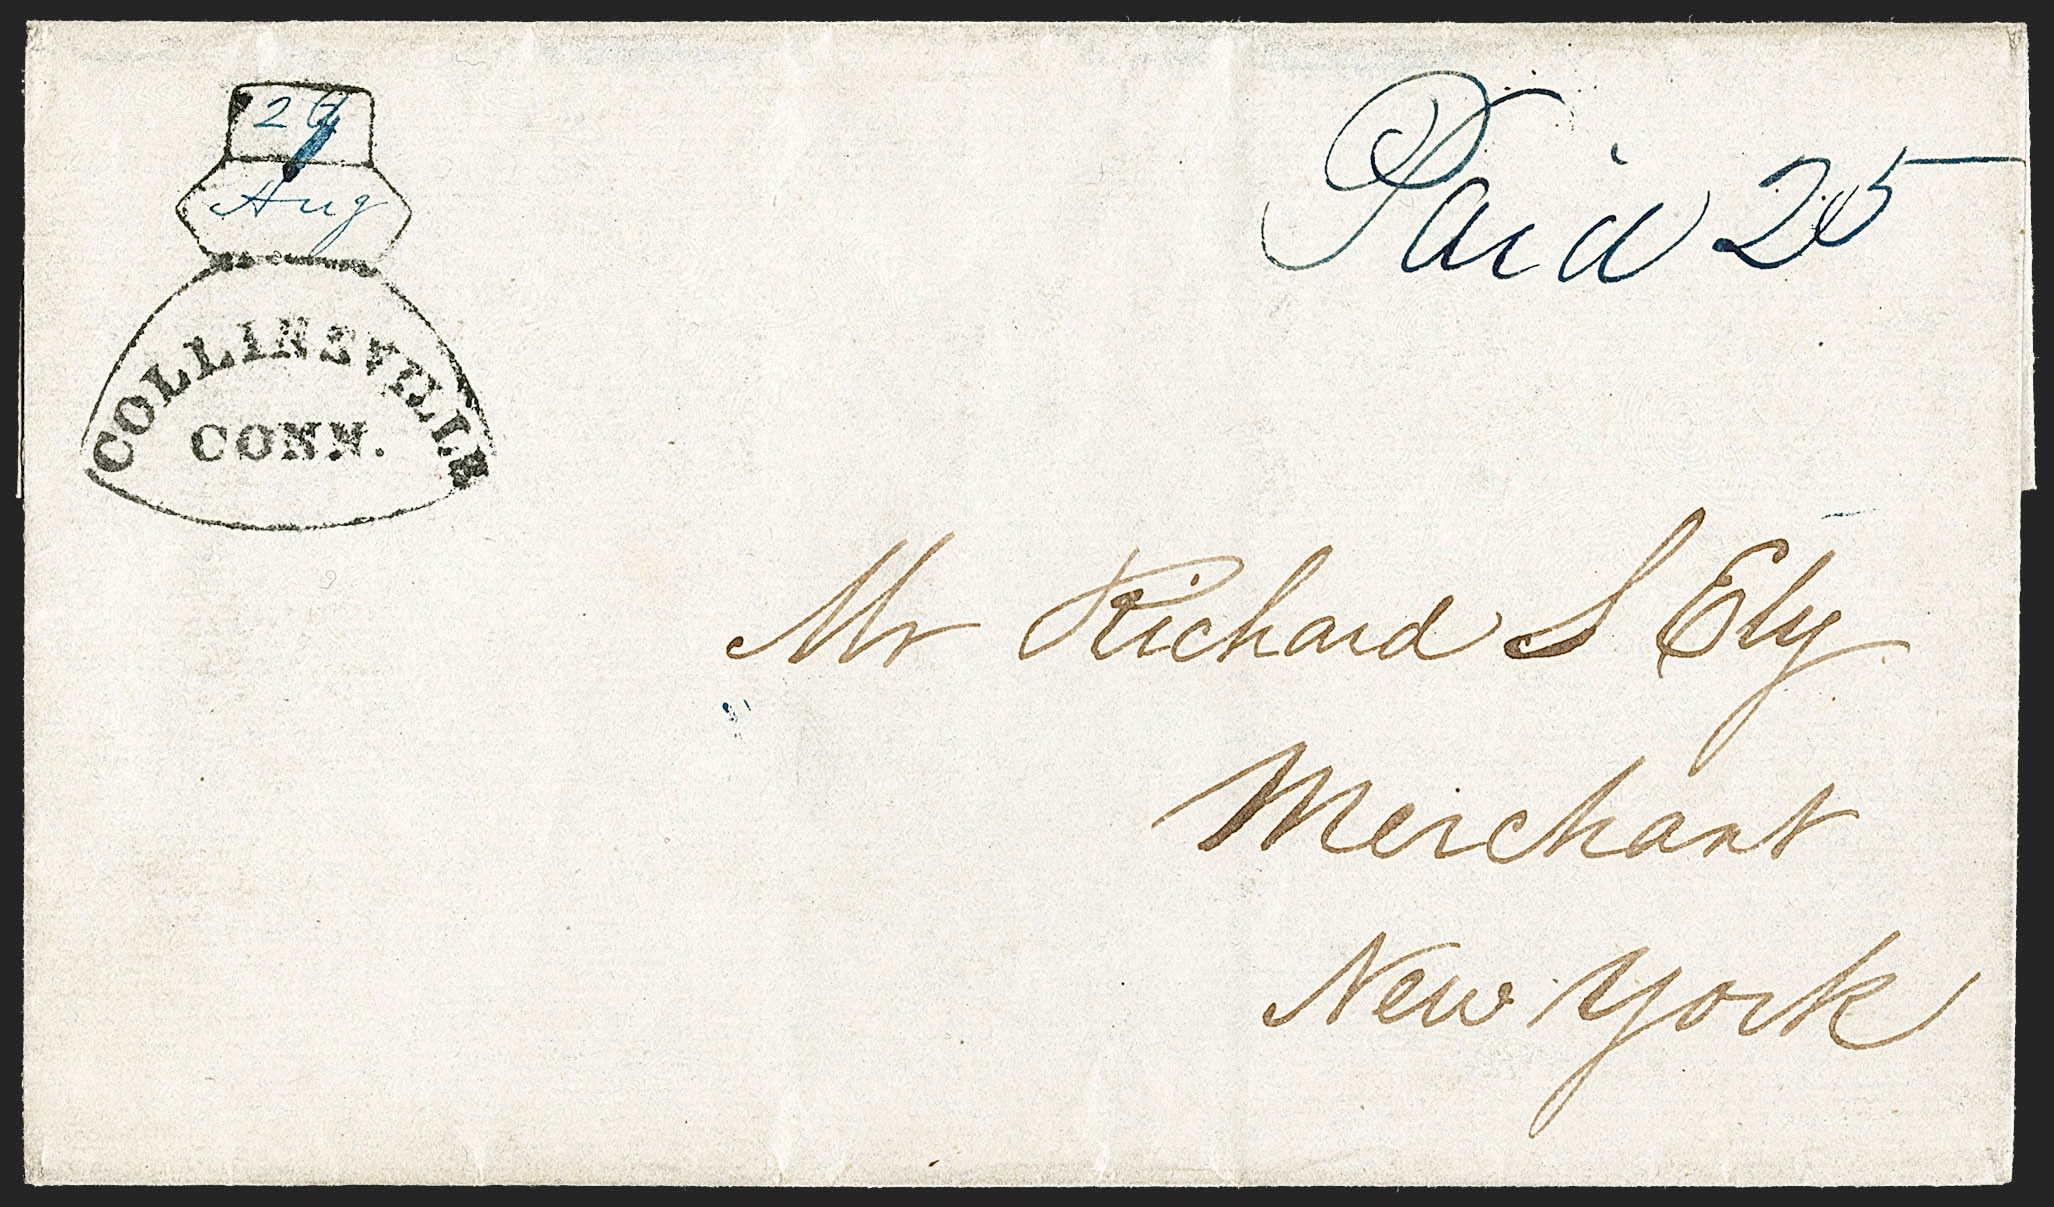 29
Aug
COLLINSVILLE
CONN.
Paid 25
Mr Richard S Ely
Merchant
New York